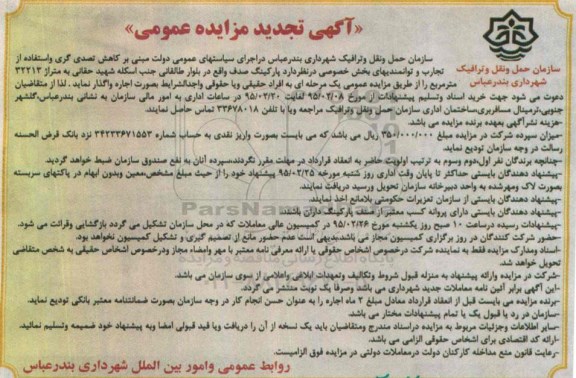 «آگهی تجدید مزایده عمومی»
سازمان حمل ونقل وترافیک
شهرداری بندرعباس
سازمان حمل ونقل وترافیک شهرداری بندرعباس دراجرای سیاستهای عمومی دولت مبنی بر کاهش تصدی گری واستفاده از
تجارب و توانمندیهای بخش خصوصی درنظردارد پارکینگ صدف واقع در بلوار طالقانی جنب اسکله شهید حقانی به متراژ ۳۲۲۱۳
مترمربع را از طریق مزایده عمومی یک مرحله ای به افراد حقیقی ویا حقوقی واجدالشرایط بصورت اجاره واگذار نماید . لذا از متقاضیان
دعوت می شود جهت خرید اسناد وتسلیم پیشنهادات از مورخ ۹۵/۰۲/۰۸ لغایت ۹۵/۰۲/۲۰ در ساعات اداری به امور مالی سازمان به نشانی بندرعباس،گلشهر
جنوبی،ترمینال مسافربری،ساختمان اداری سازمان حمل ونقل وترافیک مراجعه ویا با تلفن ۳۳۶۷۸۰۱۸ تماس حاصل نمایند.
-هزینه نشرآگهی بعهده برنده مزایده می باشد.
-میزان سپرده شرکت در مزایده مبلغ ۳۵۰/۰۰۰/۰۰۰ ریال می باشد که می بایست بصورت واریز نقدی به حساب شماره ۳۴۲۳۳۶۷۱۵۵۳ نزد بانک قرض الحسنه
رسالت در وجه سازمان تودیع نماید.
-چنانچه برندگان نفر اول،دوم وسوم به ترتیب اولویت حاضر به انعقاد قرارداد در مهلت مقرر نگردند،سپرده آنان به نفع صندوق سازمان ضبط خواهد گردید.
-پیشنهاد دهندگان بایستی حداکثر تا پایان وقت آداری روز شنبه مورخه ۹۵/۰۲/۲۵ پیشنهاد خود را از حیث مبلغ مشخص،معین وبدون ابهام در پاکتهای سربسته
بصورت لاک ومهرشده به واحد دبیرخانه سازمان تحویل ورسید دریافت نمایند.
-پیشنهاد دهندگان بایستی از سازمان تعزیرات حکومتی بلامانع اخذ نمایند.
-پیشنهاد دهندگان بایستی دارای پروانه کسب معتبر از صنف پارکینگ داران باشند.
-پیشنهادات رسیده درساعت ۱۰ صبح روز یکشنبه مورخ ۹۵/۰۲/۲۶ در کمیسیون عالی معاملات که در محل سازمان تشکیل می گردد بازگشایی وقرائت می شود.
-حضور شرکت کنندگان در روز برگزاری کمیسیون مجاز می باشد،بدیهی است عدم حضور مانع از تصمیم گیری و تشکیل کمیسیون نخواهد بود.
-اسناد ومدارک مزایده فقط به نماینده شرکت درخصوص اشخاص حقوقی با ارائه معرفی نامه معتبر با مهر وامضاء مجاز ودرخصوص اشخاص حقیقی به شخص متقاضی
تحویل خواهد شد.
-شرکت در مزایده وارائه پیشنهاد به منزله قبول شروط وتکالیف وتعهدات ابلاغی واعلامی از سوی سازمان می باشد.
-این آگهی برابر آئین نامه معاملات جدید شهرداری می باشد وصرفا یک نوبت منتشر می گردد.
-برنده مزایده می بایست قبل از انعقاد قرارداد معادل مبلغ ۲ ماه اجاره را به عنوان حسن انجام کار در وجه سازمان بصورت ضمانتنامه معتبر بانکی تودیع نماید.
-سازمان در رد یا قبول یک یا تمام پیشنهادات مختار می باشد.
-سایر اطلاعات وجزئیات مربوط به مزایده دراسناد مندرج ومتقاضیان باید یک نسخه از آن را دریافت وبا قید قبولی امضا وبه پیشنهاد خود ضمیمه وتسلیم نمایند.
-ارائه کد اقتصادی برای اشخاص حقوقی الزامی می باشد.
-رعایت قانون منع مداخله کارکنان دولت درمعاملات دولتی در مزایده فوق الزامیست.
روابط عمومی وامور بین الملل شهرداری بندرعباس